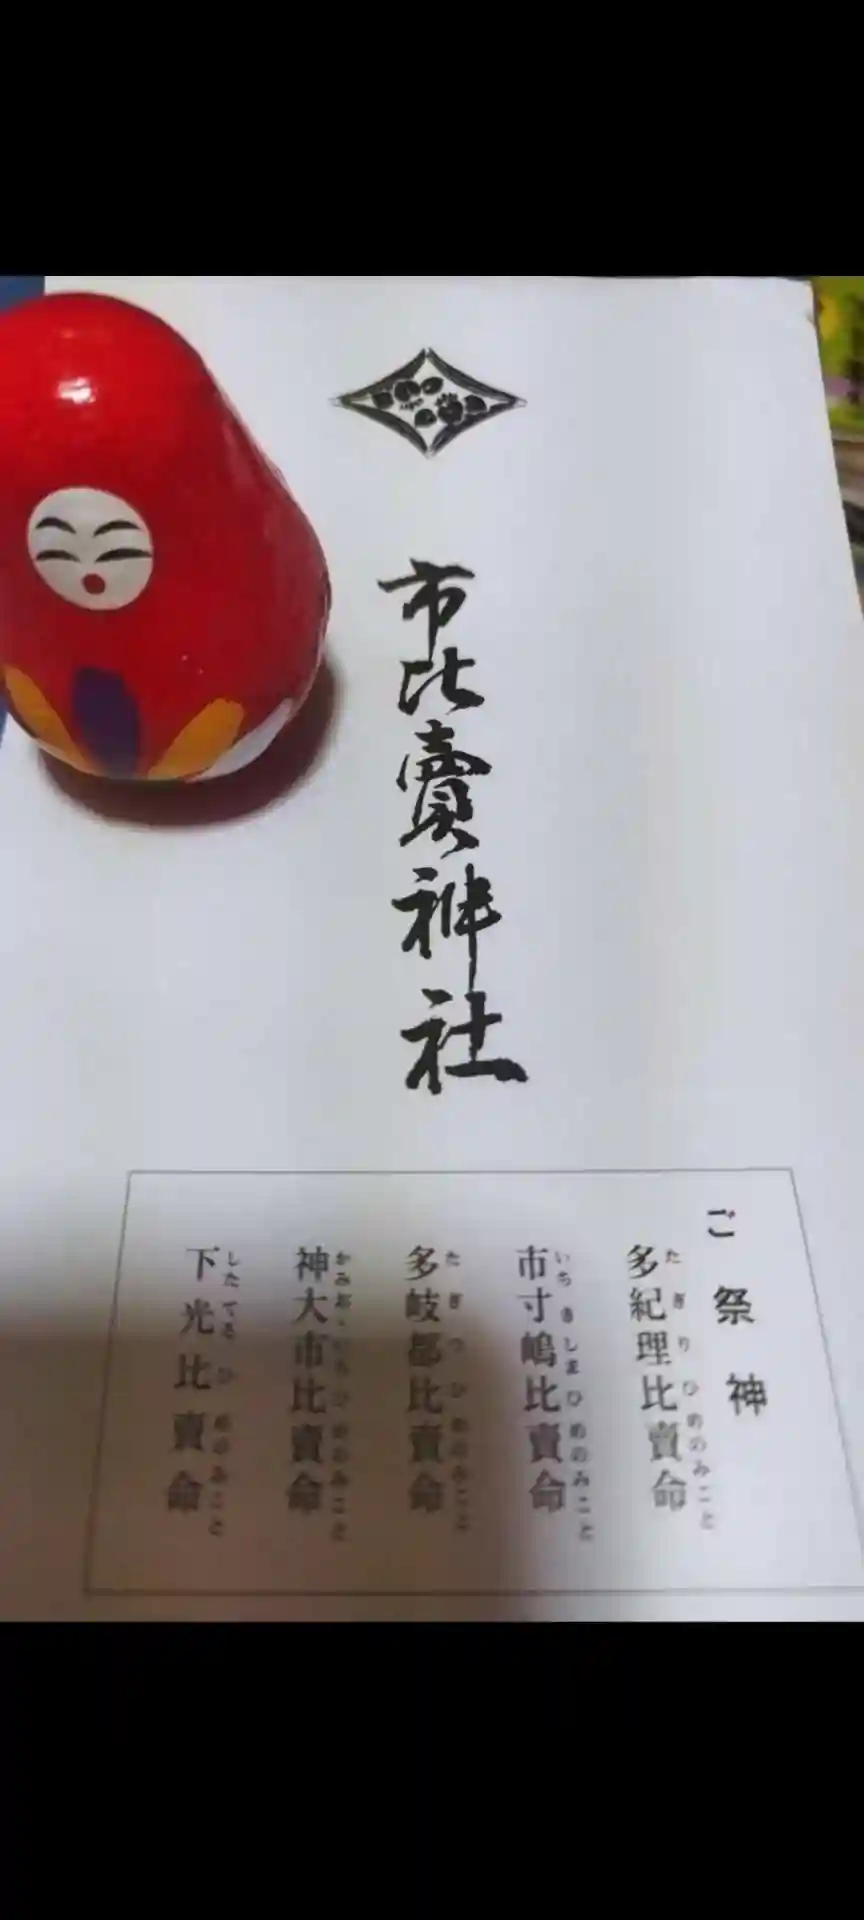 市比賣神社
ご祭神
多紀理比賣命
たぎりひめのみこと
市寸嶋比賣命
いちきしまひめのみこと
多岐都比賣命
たぎつひめのみこと
神大市比賣命
かみおおいちひめのみこと
下光比賣命
したてるひめのみこと